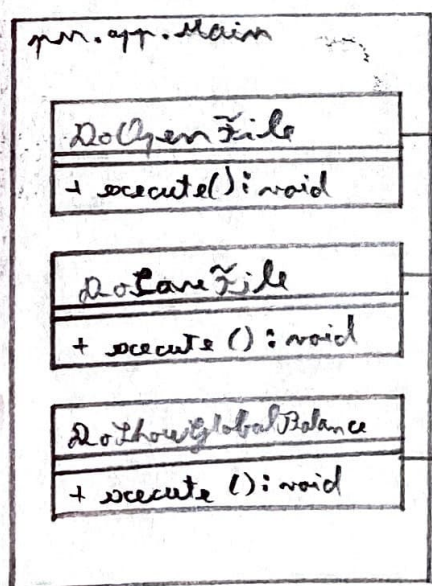 app.main
DoOpenFile
+ execute(): void
DoSaveFile
+ execute (): void
DoShowGlobalBalance
+ execute (): void